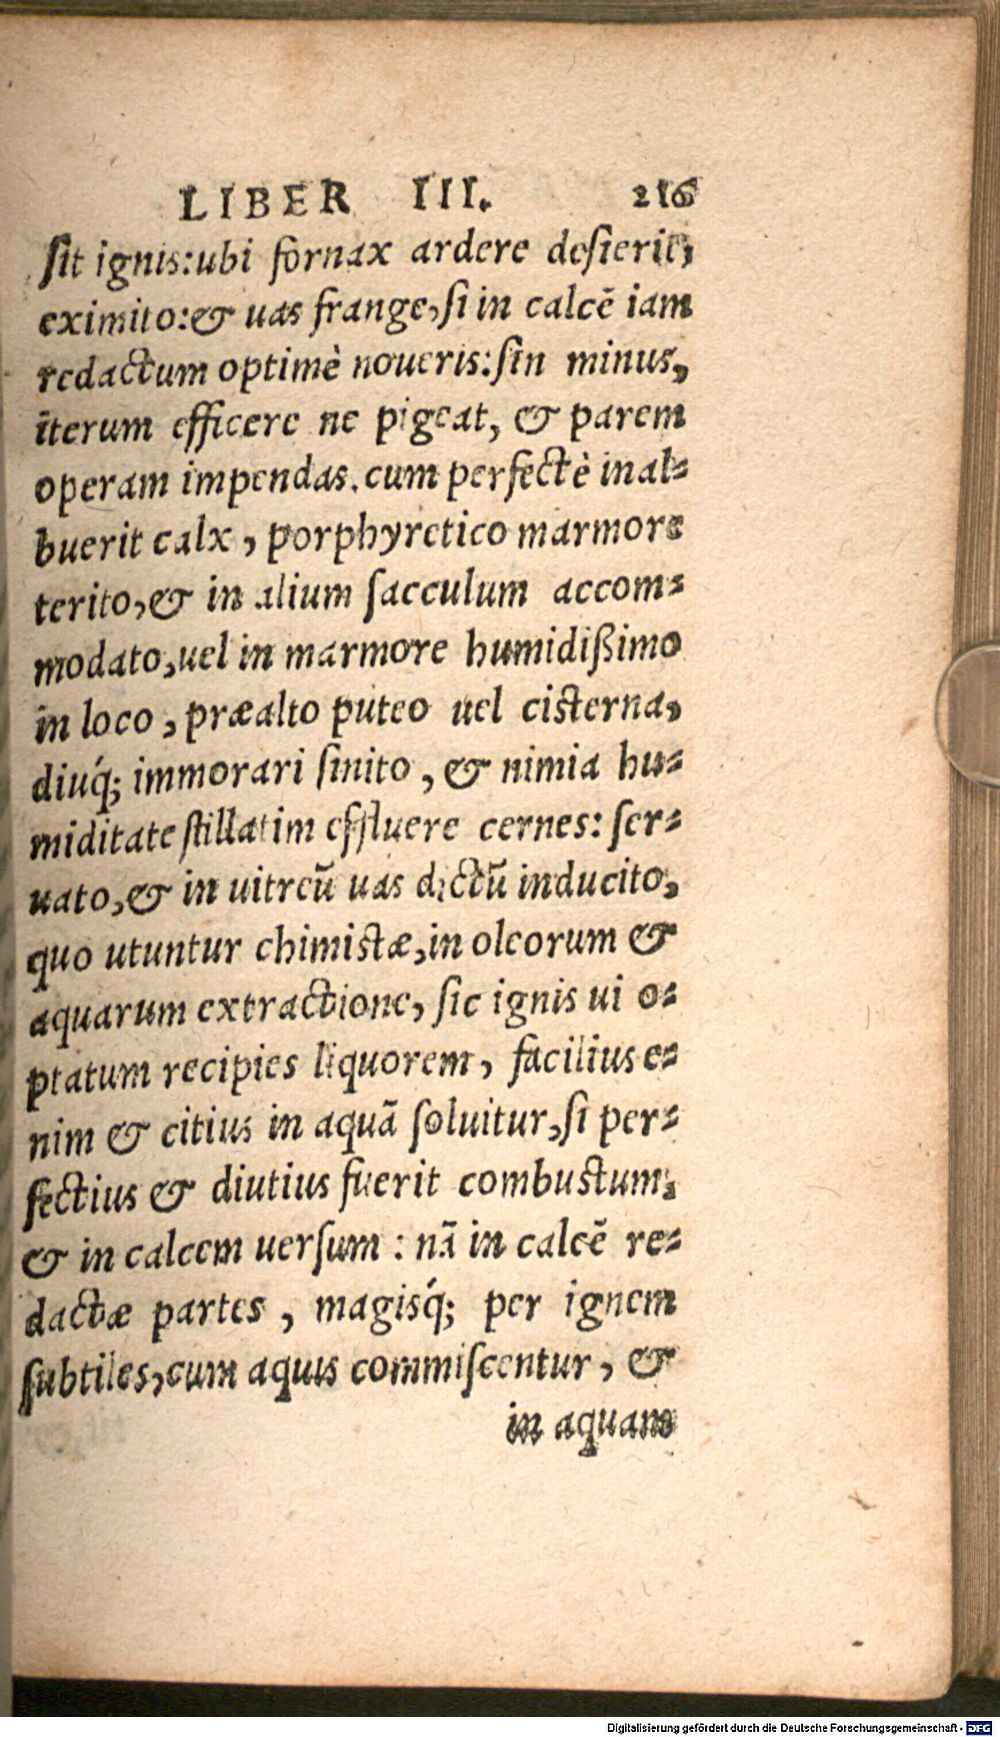 LIBER III. 216
sit ignis:ubi fornax ardere desierit,
eximito:& uas frange,si in calcē iam
redactum optimè noueris:sin minus,
iterum efficere ne pigeat, & parem
operam impendas.cum perfectè inal-
buerit calx, porphyretico marmore
terito,& in alium sacculum accom-
modato,uel in marmore humidißimo
in loco, præalto puteo uel cisterna,
diuq́; immorari sinito, & nimia hu-
miditate stillatim effluere cernes: ser-
uato,& in uitreū uas dictū inducito,
quo utuntur chimistæ,in oleorum &
aquarum extractione, sic ignis ui o-
ptatum recipies liquorem, facilius e-
nim & citius in aquā soluitur,si per-
fectius & diutius fuerit combustum,
& in calcem uersum: nā in calcē re-
dactæ partes, magisq́; per ignem
subtiles,cum aquis commiscentur, &
in aquam
Digitalisierung gefördert durch die Deutsche Forschungsgemeinschaft - DFG